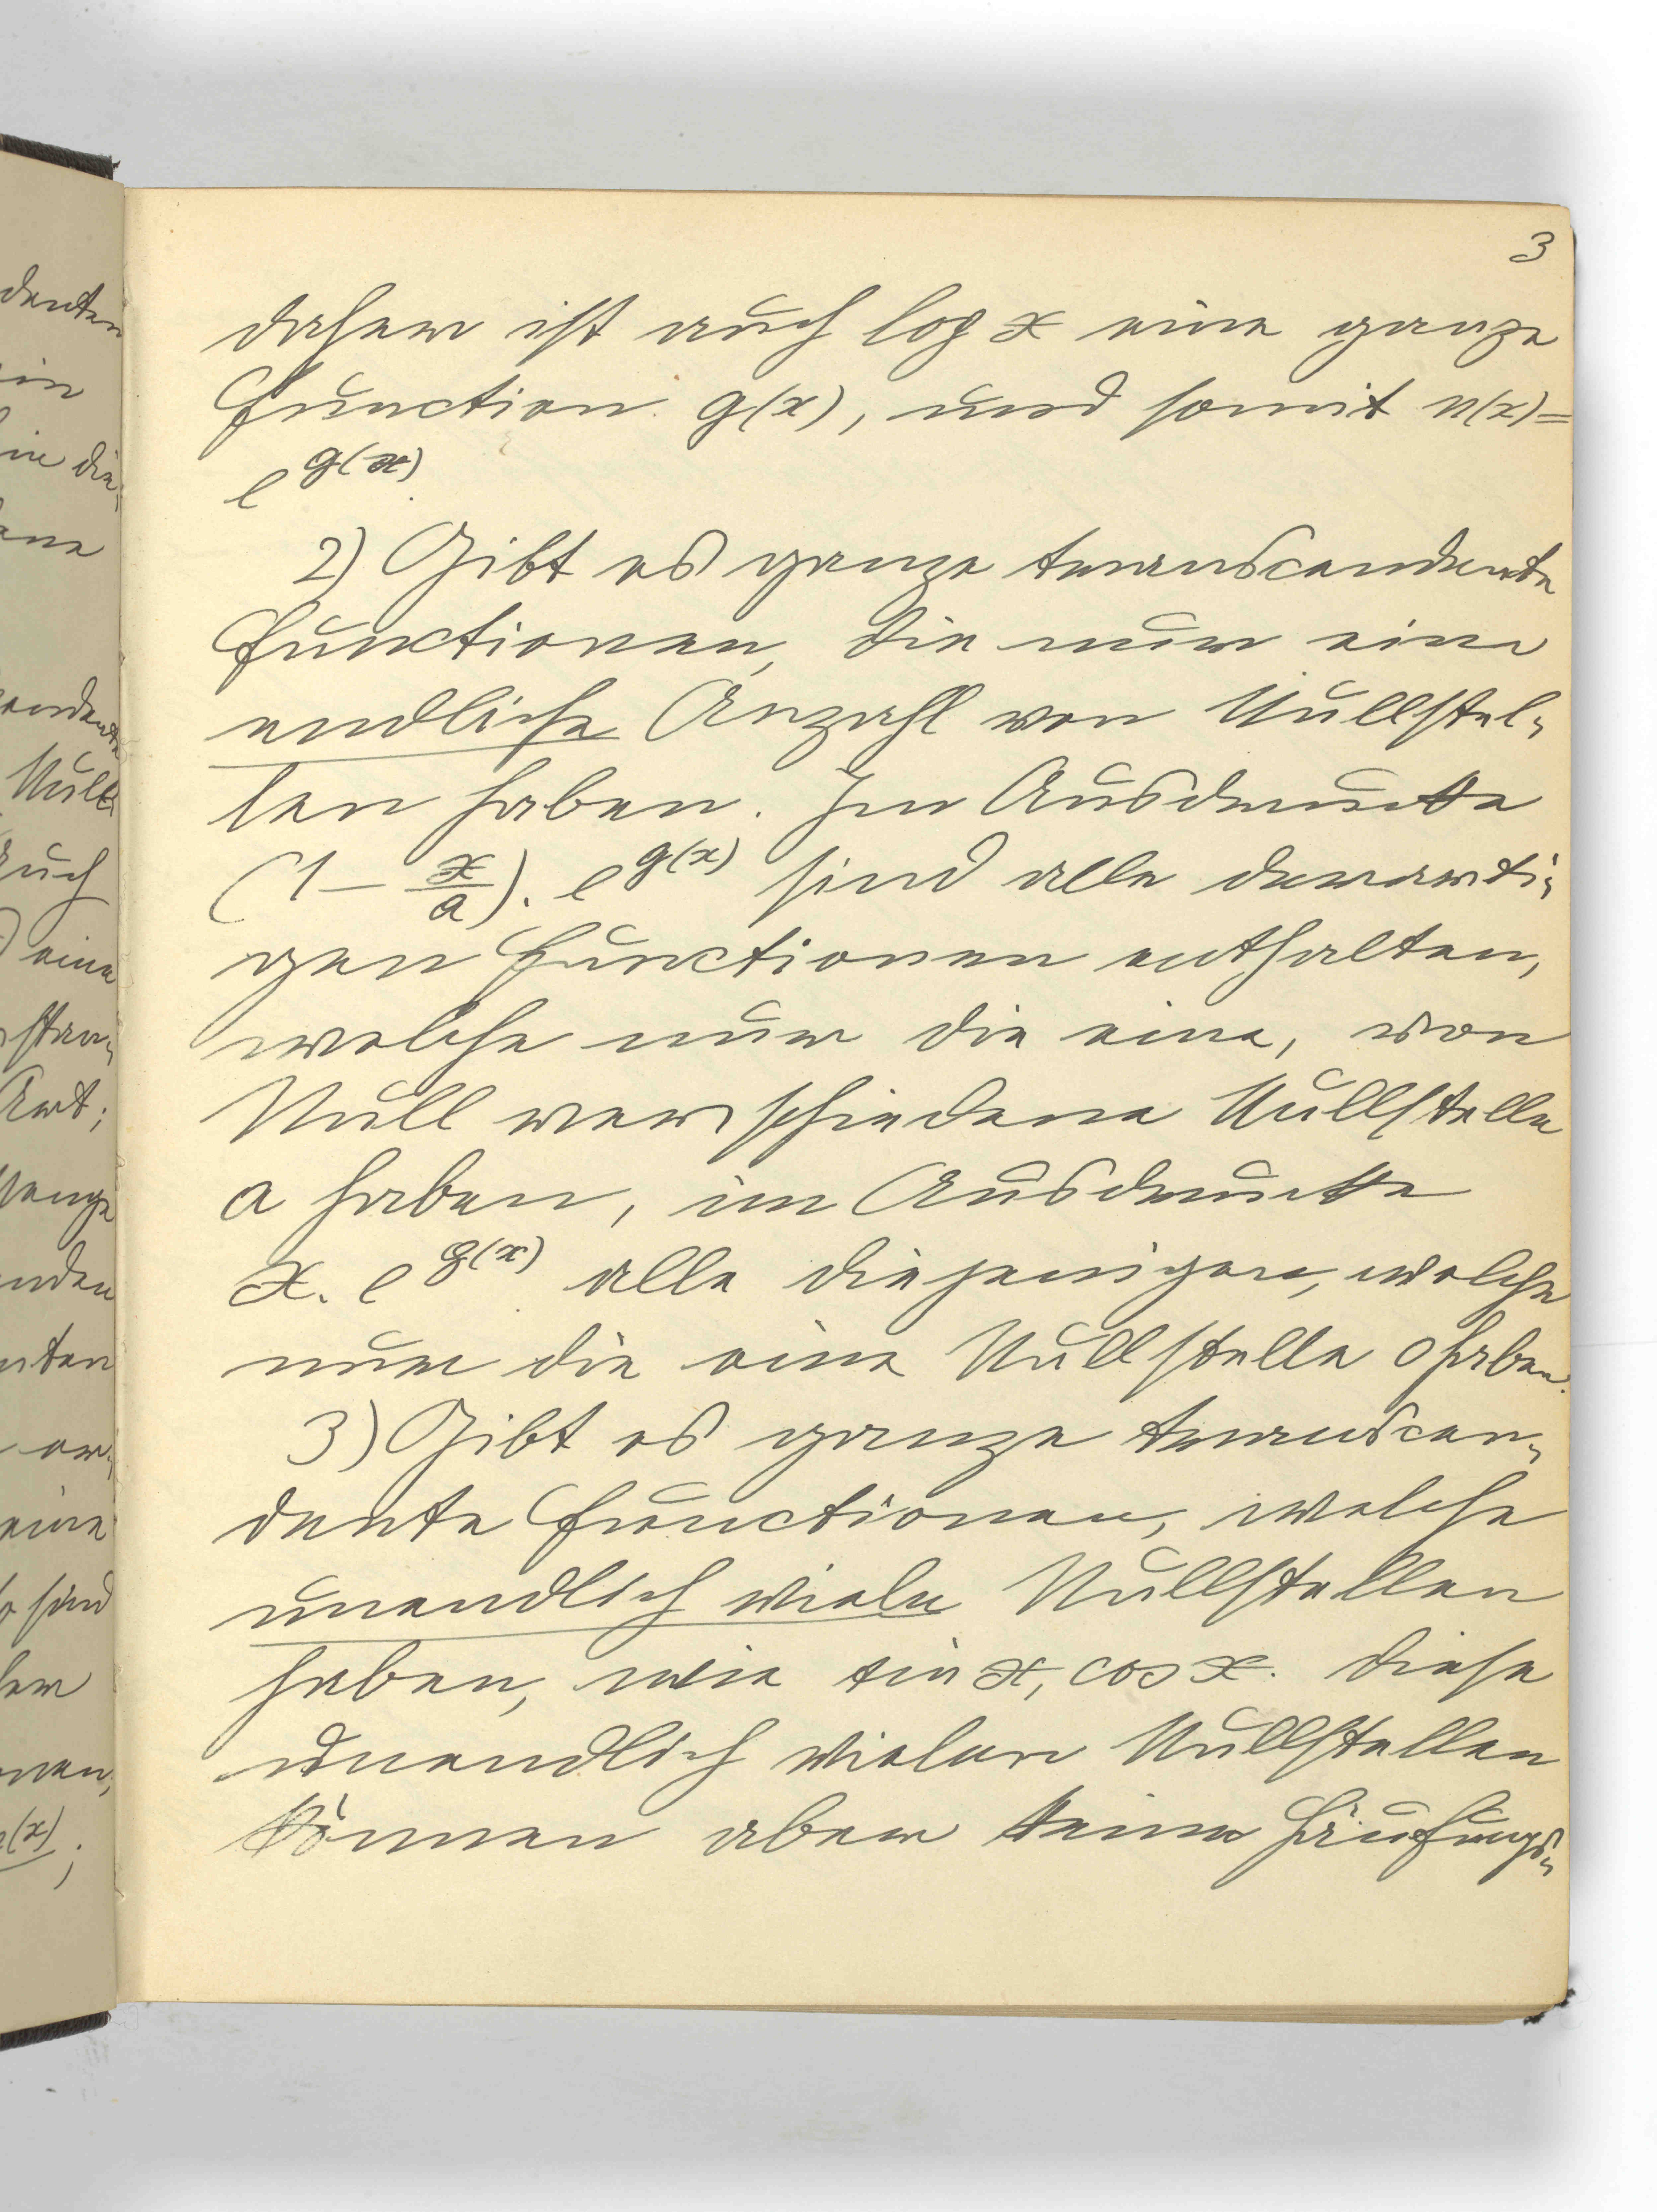 3
daher ist auch log x eine ganze
Function g(x), und somit n(x)=
e^{g(x)}.
2) Gibt es ganze transcendente
Functionen, die nur eine
endliche Anzahl von Nullstel-
len haben. Im Ausdrucke
(1 - x/a). e^{g(x)} sind alle derarti-
gen Functionen enthalten,
welche nur die eine, von
Null verschiedene Nullstelle
a haben, im Ausdrucke
x. e^{g(x)} alle diejenigen, welche
nur die eine Nullstelle 0 haben.
3) Gibt es ganze transcen-
dente Functionen, welche
unendlich viele Nullstellen
haben, wie sin x, cos x. Diese
unendlich vielen Nullstellen
können aber keine Häufungs-